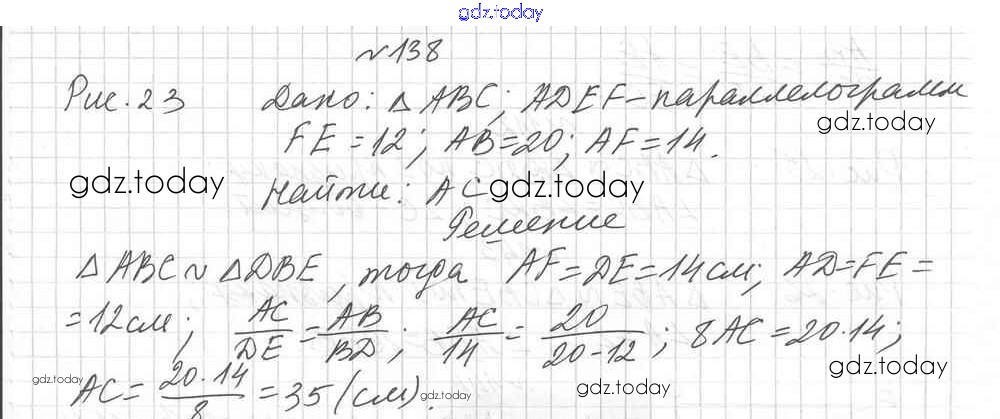 gdz.today
№138
Рис. 23 Дано: △ABC; ADEF – параллелограмм
gdz.today
FE = 12; AB = 20; AF = 14.
gdz.today
Найти: AC gdz.today
Решение
△ABC ~ △DBE, тогда AF = DE = 14 см; AD = FE =
= 12 см; AC/DE = AB/BD; AC/14 = 20/(20-12); 8AC = 20·14;
gdz.today AC = 20·14/8 = 35 (см). gdz.today gdz.today gdz.today